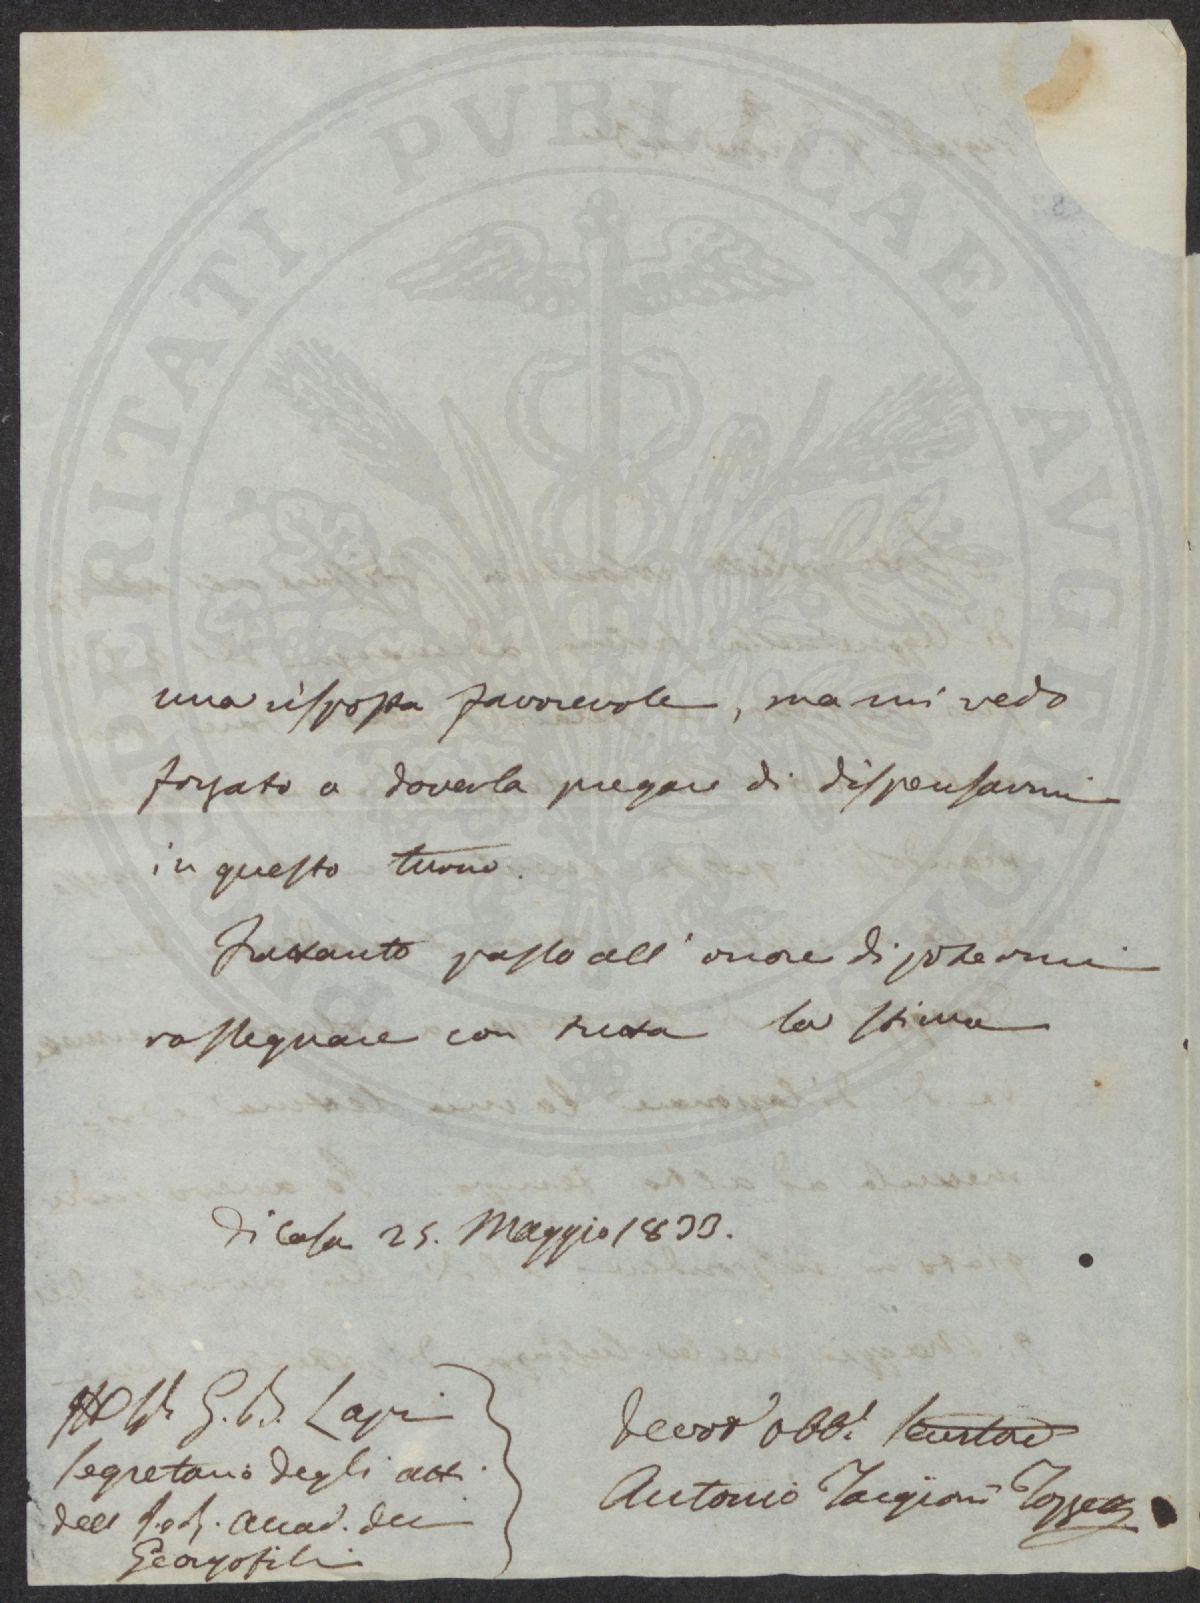 PROSPERITATI PVBLICAE AVGENDAE
una risposta favorevole, ma mi vedo
forzato a doverla pregare di dispensarmi
in questo turno.
Frattanto passo all' onore di potermi
rassegnare con tutta la stima
Di Casa 25. Maggio 1833.
G. B. Lapi
Segretario degli atti
dell' I. e R. Accad. dei
Georgofili
Devot° obb.°
Antonio Targioni Tozzetti